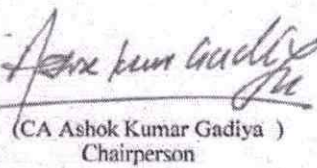 Ashok kumar Gadiya
(CA Ashok Kumar Gadiya )
Chairperson